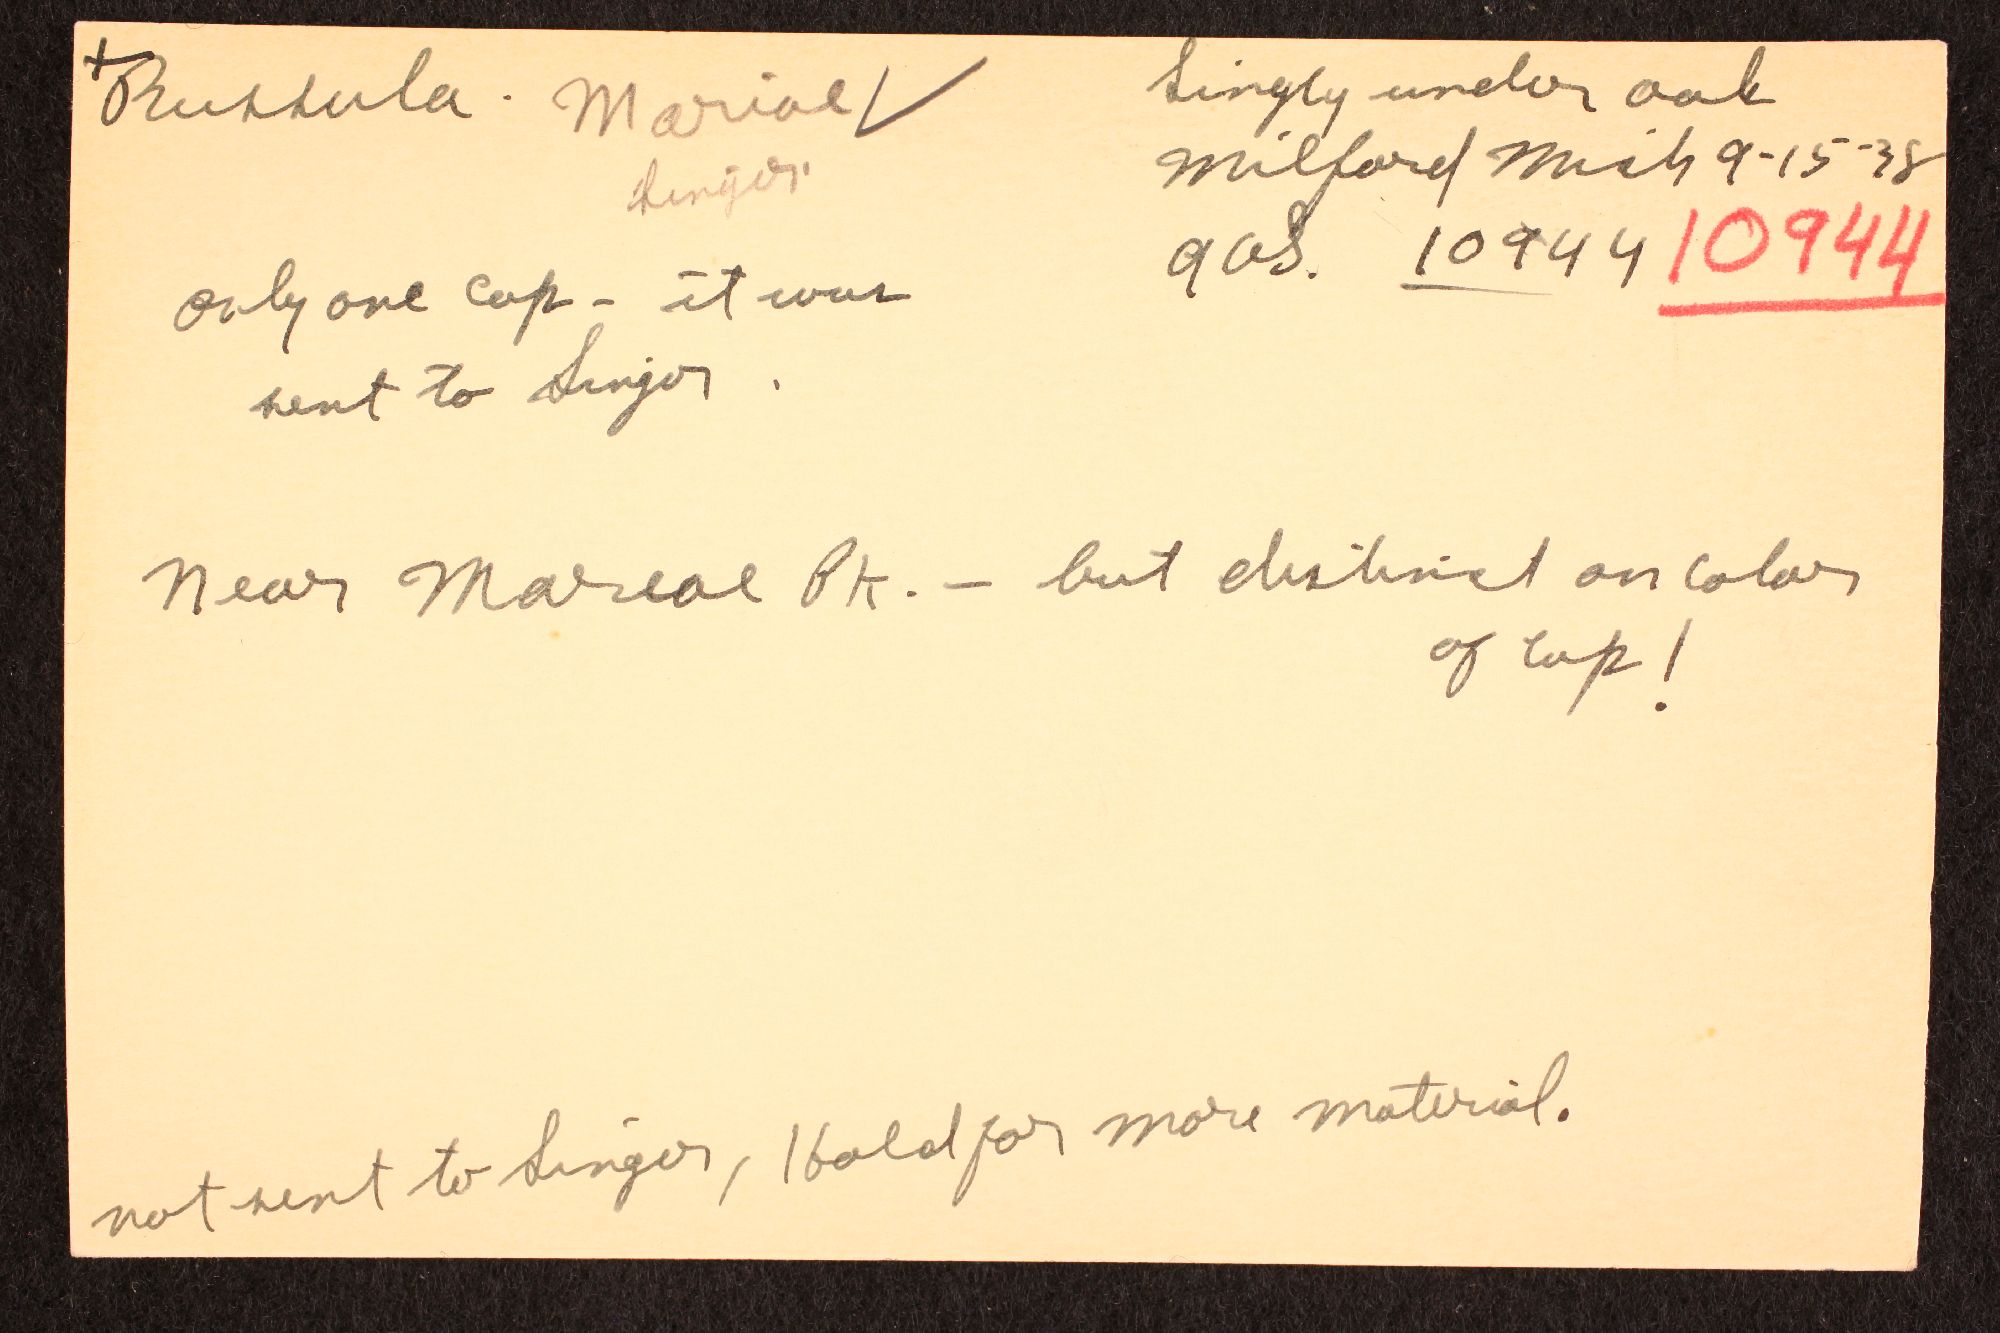 +Russula. Mariae ✓
Singer.
Singly under oak
Milford Mich 9-15-38
AHS. 10944 10944
only one cap - it was
sent to Singer.
Near Mareae Pk. - but distinct on color
of cap!
not sent to Singer, Hold for more material.